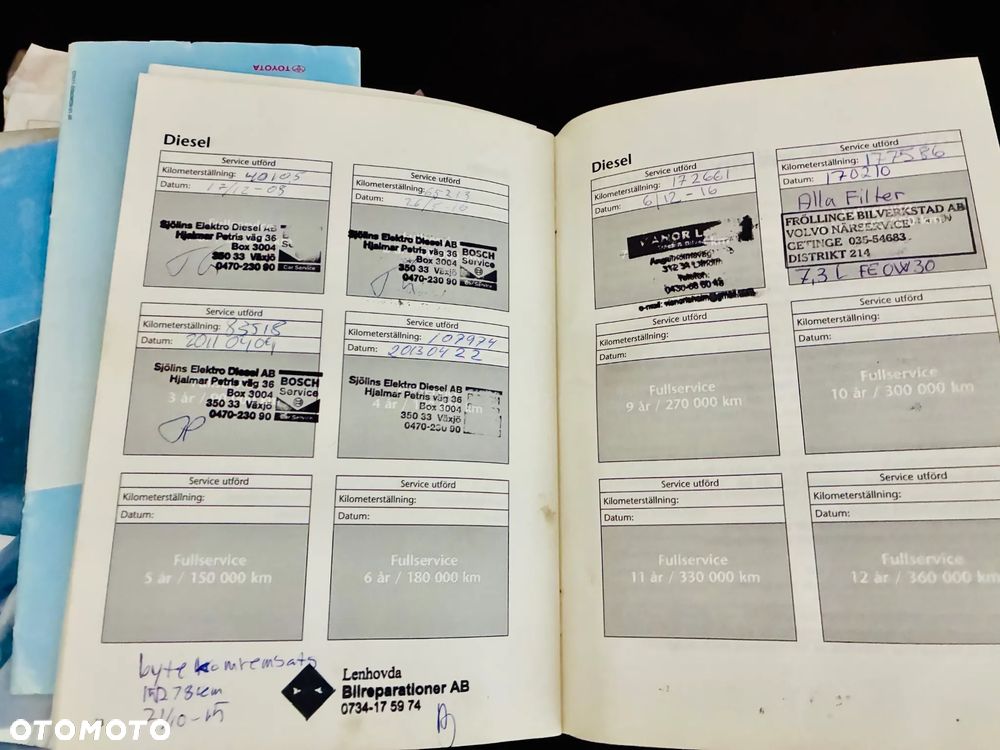 TOYOTA
Diesel
Service utförd
Kilometerställning: 40105
Datum: 17/12-09
Sjölins Elektro Diesel AB
Hjalmar Petris väg 36
Box 3004
350 33 Växjö
0470-230 90
Car Service
Service utförd
Kilometerställning: 65213
Datum:
Sjölins Elektro Diesel AB
Hjalmar Petris väg 36
Box 3004
350 33 Växjö
0470-230 90
BOSCH
Service
Car Service
Service utförd
Kilometerställning: 83518
Datum: 20110404
Sjölins Elektro Diesel AB
Hjalmar Petris väg 36
Box 3004
350 33 Växjö
0470-230 90
BOSCH
Service
3 år /
Service utförd
Kilometerställning: 107974
Datum: 20130422
Sjölins Elektro Diesel AB
Hjalmar Petris väg 36
Box 3004
350 33 Växjö
0470-230 90
4 år / km
Service utförd
Kilometerställning:
Datum:
Fullservice
5 år / 150 000 km
Service utförd
Kilometerställning:
Datum:
Fullservice
6 år / 180 000 km
byte kamremsats
21/10-15
Lenhovda
Bilreparationer AB
0734-17 59 74
Diesel
Service utförd
Kilometerställning: 172661
Datum: 6/12-16
0430-66 60 48
Service utförd
Kilometerställning: 177586
Datum: 170210
Alla Filter
FRÖLLINGE BILVERKSTAD AB
VOLVO NÄRSERVICE
GETINGE 035-54683
DISTRIKT 214
7,3 L FE 0W30
Service utförd
Kilometerställning:
Datum:
Fullservice
9 år / 270 000 km
Service utförd
Kilometerställning:
Datum:
Fullservice
10 år / 300 000 km
Service utförd
Kilometerställning:
Datum:
Fullservice
11 år / 330 000 km
Service utförd
Kilometerställning:
Datum:
Fullservice
12 år / 360 000 km
OTOMOTO